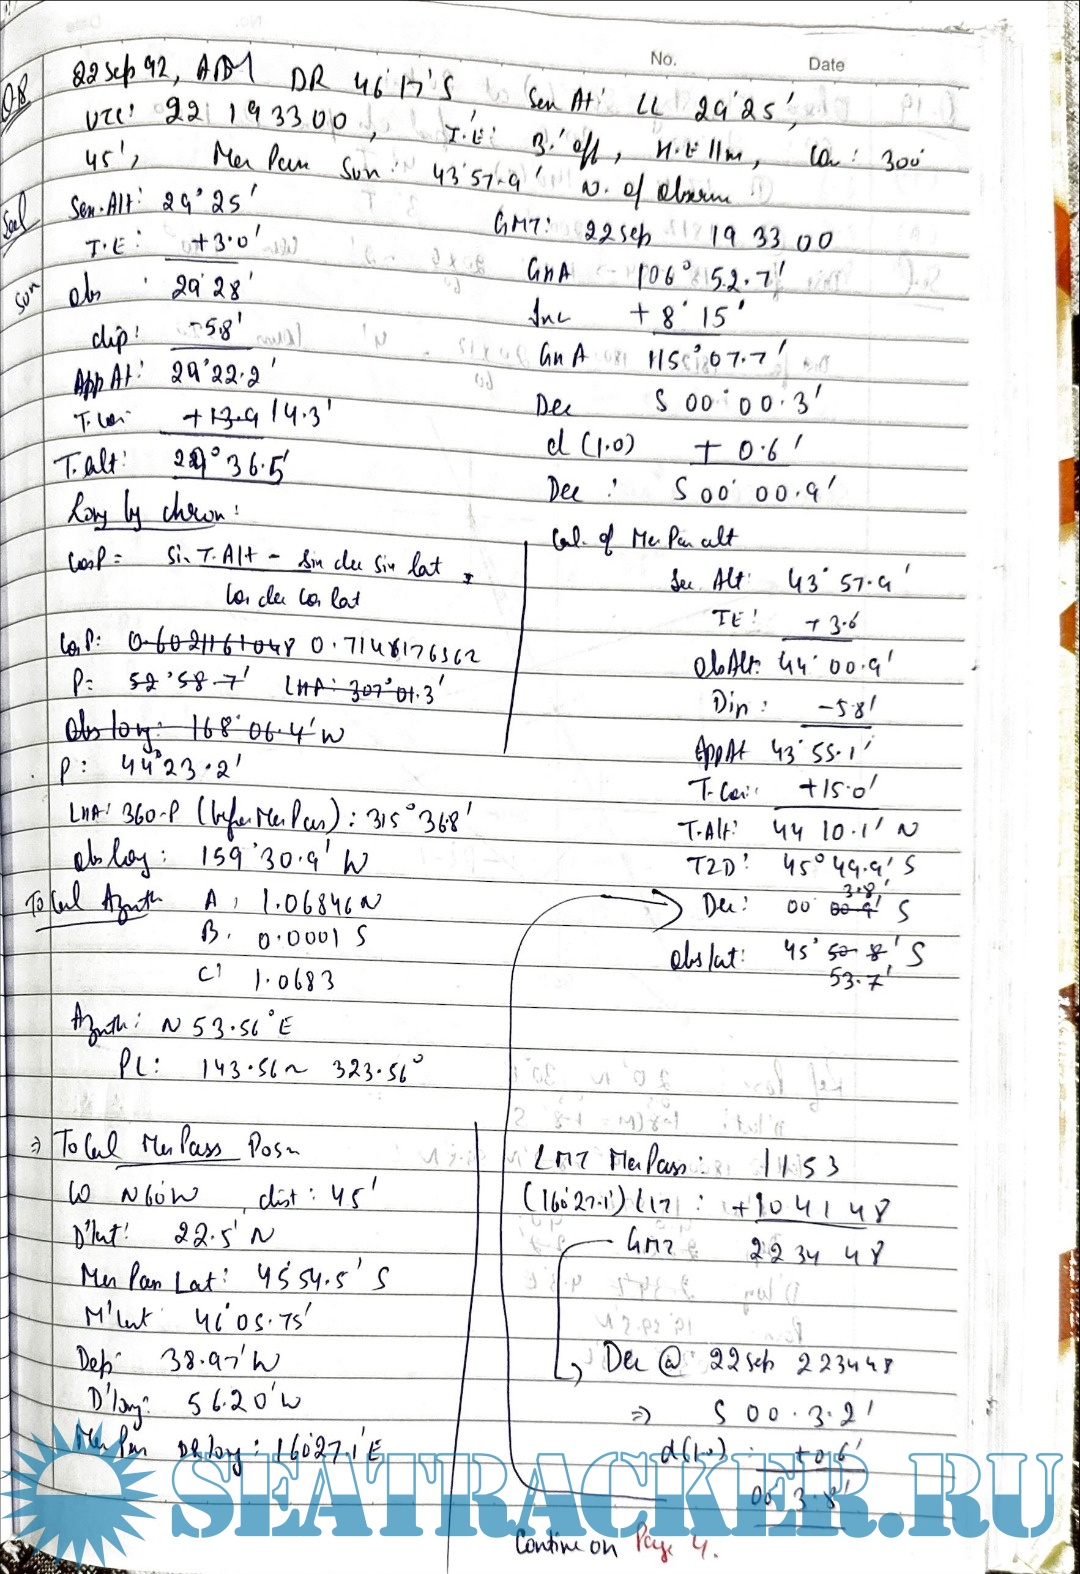 No. Date
Q8 22 Sep 92, AM DR 46°17'S Sex Alt: LL 29°25',
UTC: 22 19 33 00, I.E: 3.' off, H.E 11m, Co: 300°
45', Mer Pass Sun: 43°57.9' N. of Observer
Sol Sex.Alt: 29°25'
I.E: +3.0'
Sun Obs 29°28'
dip: -5.8'
App Alt: 29°22.2'
T.Corr +13.9 14.3'
T.alt: 29°36.5'
Long by chron:
CosP = Sin T.Alt - Sin dec Sin lat
Cos dec Cos lat
CosP: 0.6021161048 0.7148176362
P= 52°58.7' LHA: 307°01.3'
Obs long: 168°06.4'W
P: 44°23.2'
LHA: 360-P (before Mer Pass): 315°36.8'
Obs long: 159°30.9'W
To Cal Azmth A, 1.06846 N
B. 0.0001 S
C' 1.0683
Azmth: N 53.56°E
PL: 143.56 ~ 323.56°
GMT: 22 Sep 19 33 00
GHA 106° 52.7'
Inc + 8° 15'
GHA 115° 07.7'
Dec S 00° 00.3'
d (1.0) + 0.6'
Dec: S 00° 00.9'
Cal. of Mer Pass alt
Sex. Alt: 43° 57.9'
IE: + 3.6
Ob Alt: 44° 00.9'
Dip: -5.8'
App Alt 43° 55.1'
T.Corr: +15.0'
T.Alt: 44 10.1' N
TZD: 45° 49.9' S
3.8'
Dec: 00 00.9' S
Obs lat: 45° 50.8' S
53.7'
⇒ To Cal Mer Pass Posn
Co N60W, dist: 45'
D'lat: 22.5' N
Mer Pass Lat: 45°54.5' S
M'lat 46°05.75'
Dep: 38.97' W
D'long: 56.20' W
Mer Pass DR long: 160°27.1'E
LMT Mer Pass: 11 53
(160°27.1') LIT: +10 41 48
GMT 22 34 48
Dec @ 22 Sep 22 34 48
⇒ S 00.3.2'
d(1.0): +0.6'
00° 3.8'
Continue on Page 4.
SEATRACKER.RU